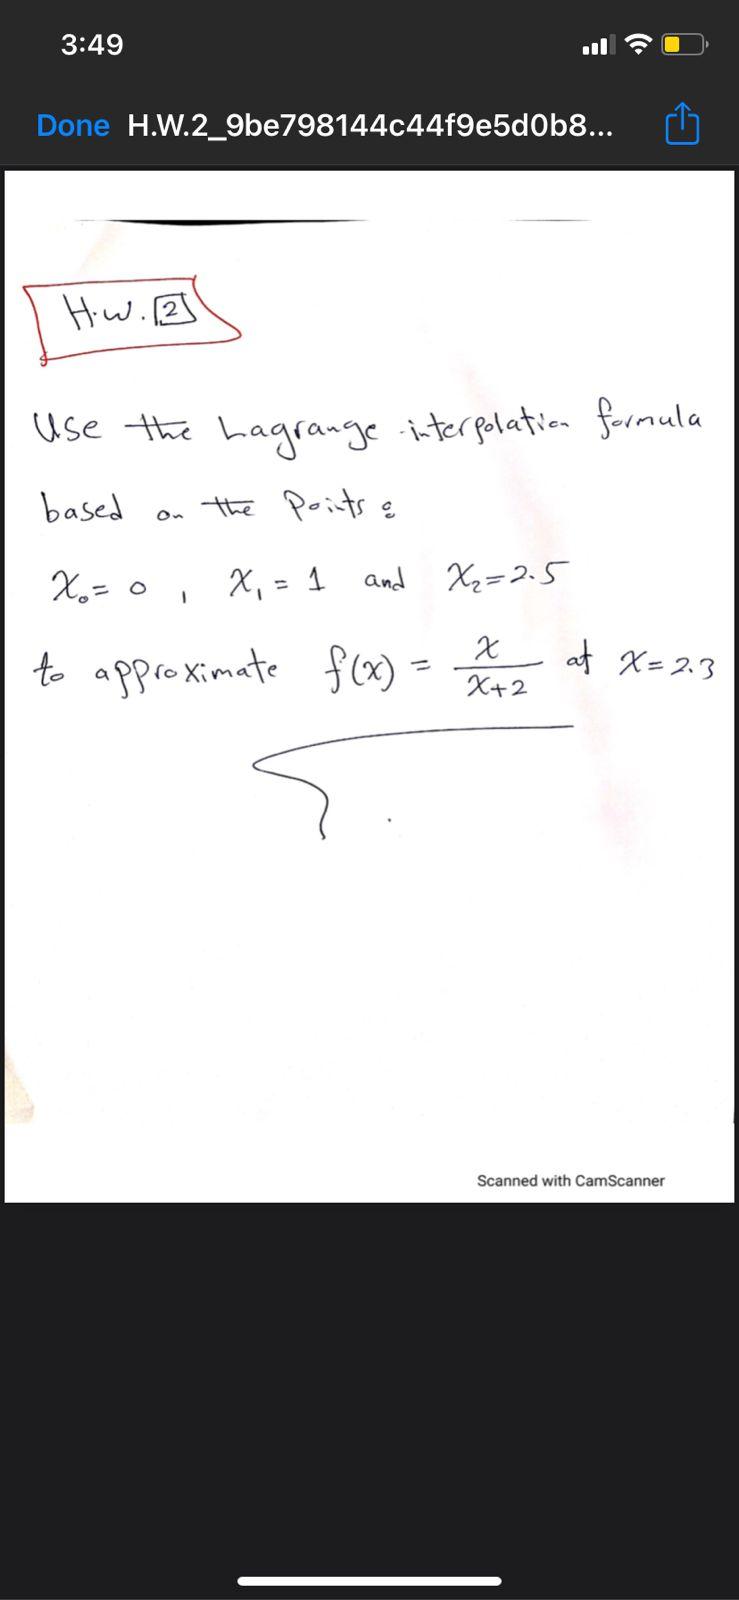 3:49
Done H.W.2_9be798144c44f9e5d0b8...
H.W. 2
Use the Lagrange interpolation formula
based on the Points :
X₀ = 0 , X₁ = 1 and X₂ = 2.5
to approximate f(x) = x/(x+2) at x = 2.3
Scanned with CamScanner